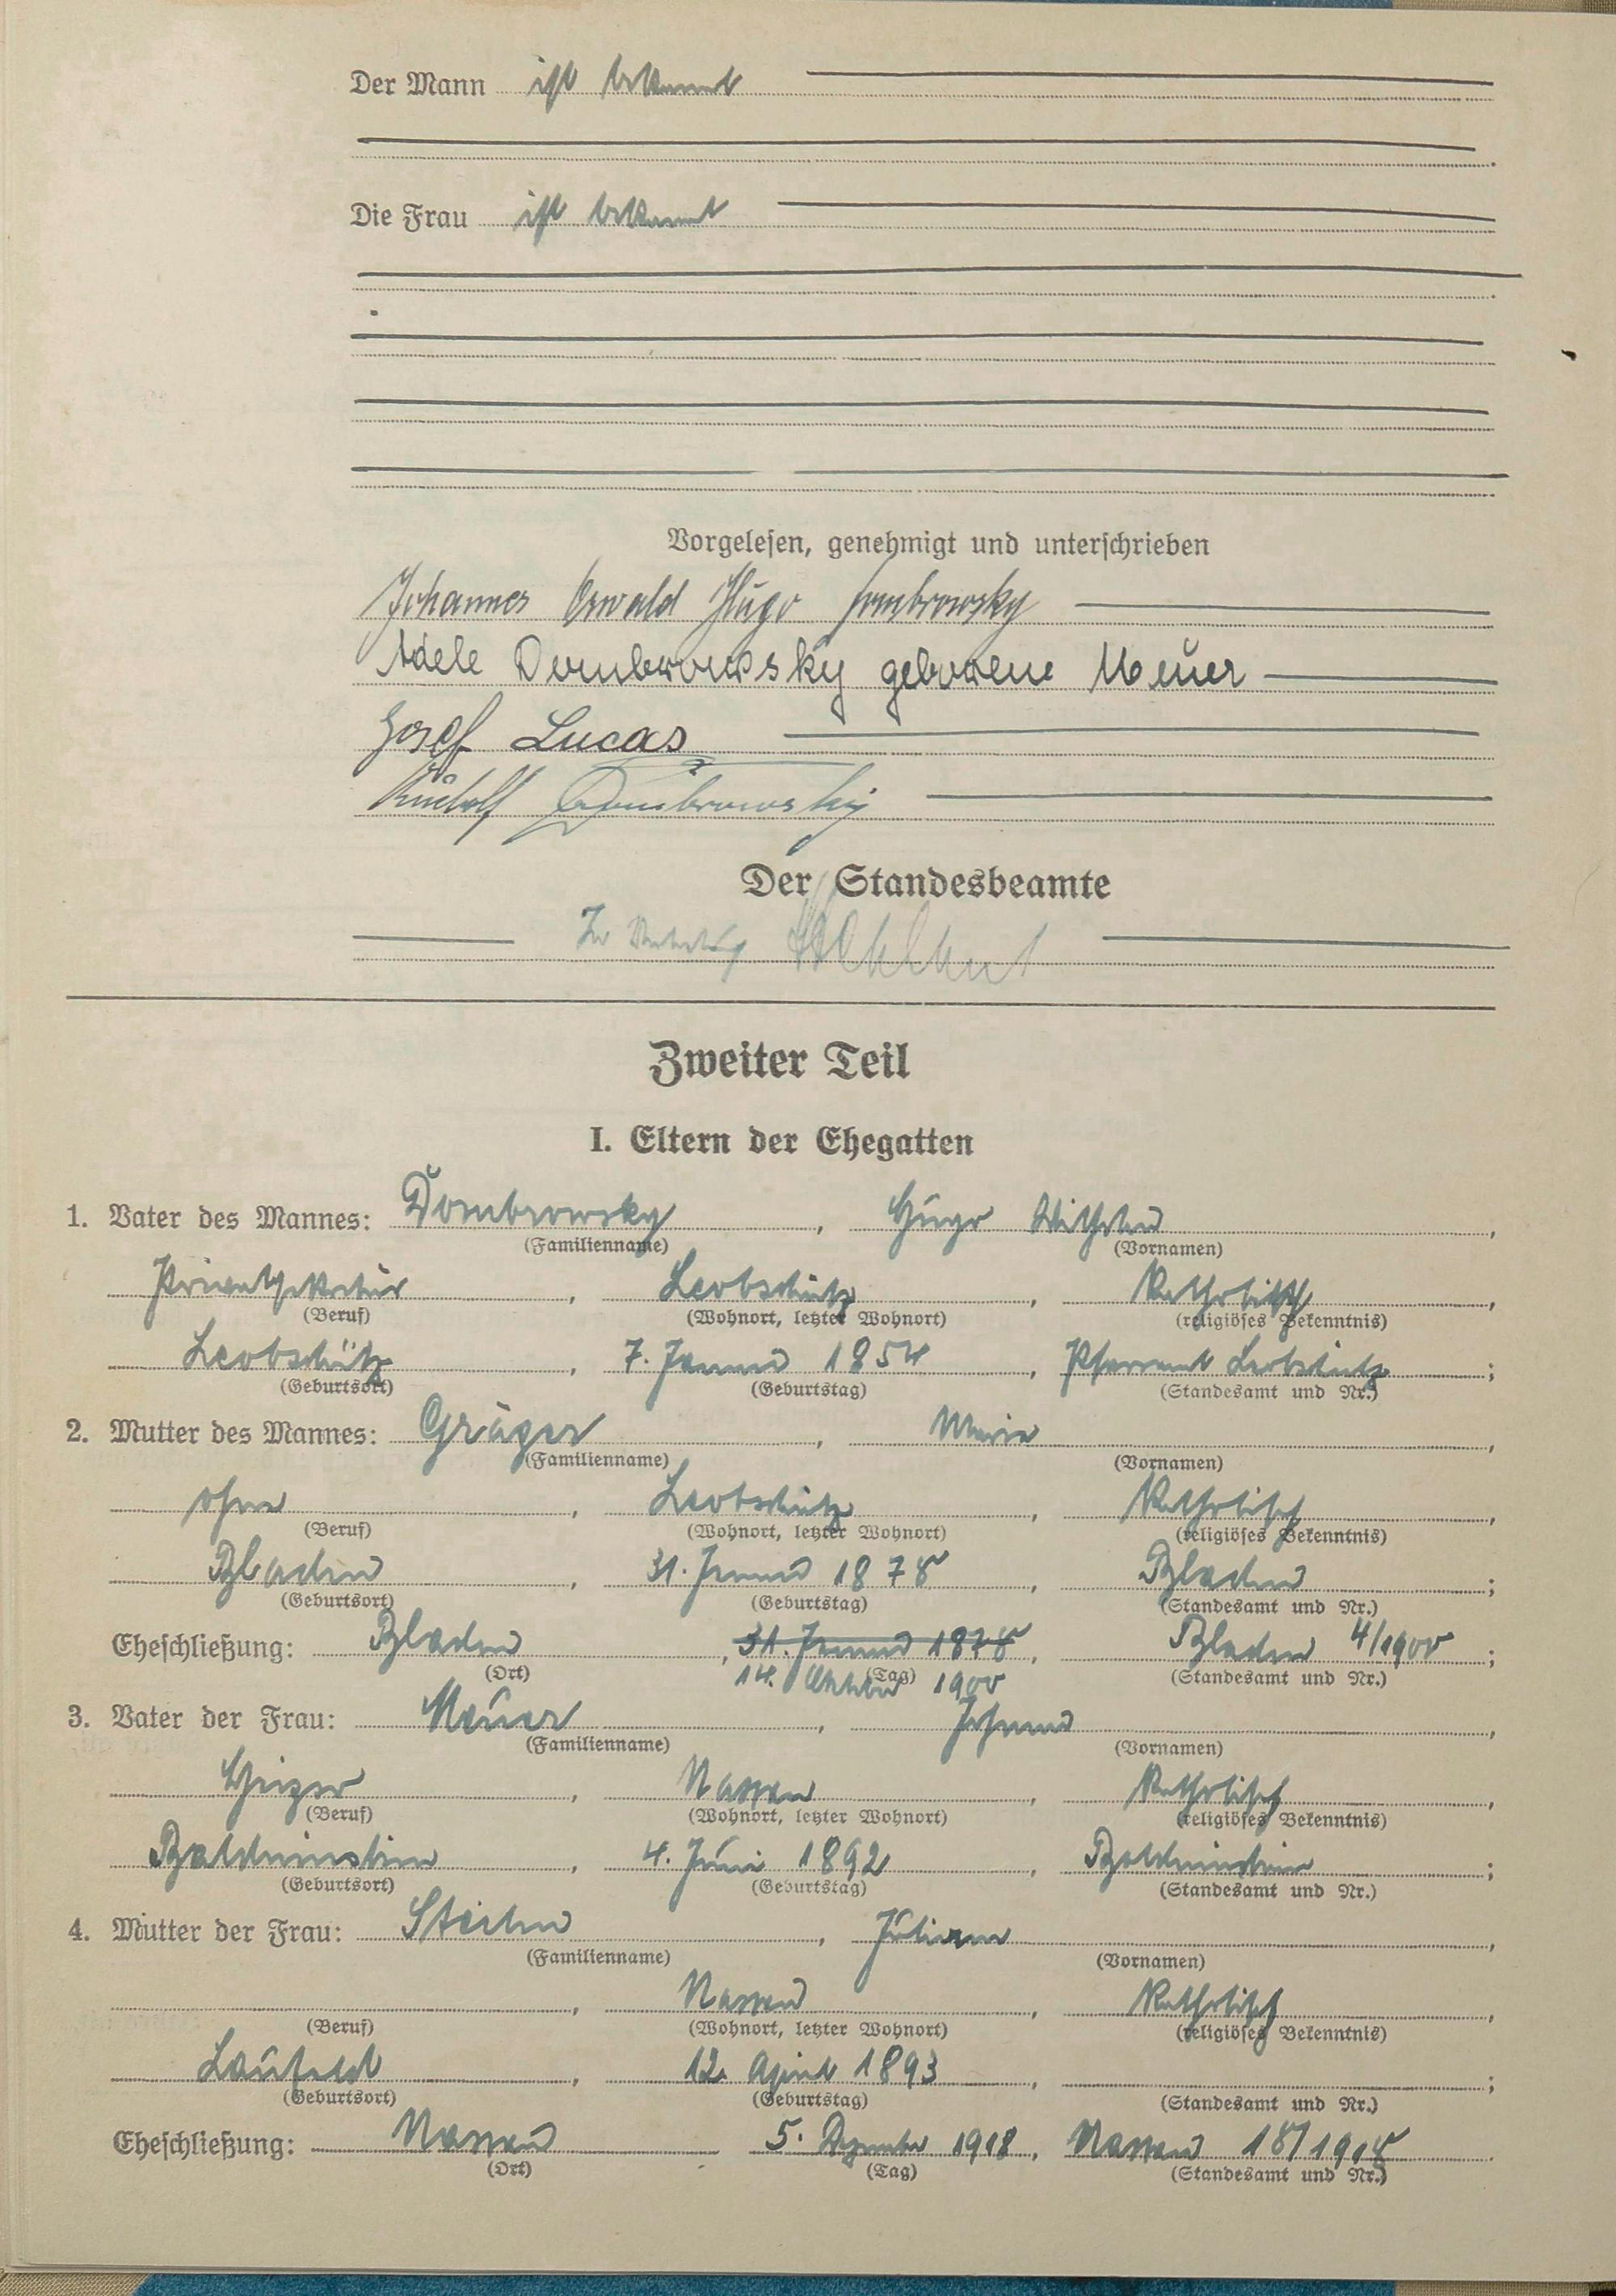 Der Mann ist bekannt
Die Frau ist bekannt
Vorgelesen, genehmigt und unterschrieben
Johannes Oswald Hugo Dombrowsky
Adele Dombrowsky geborene Meuer
Josef Lucas
Rudolf Dombrowsky
Der Standesbeamte
In Vertretung
Zweiter Teil
I. Eltern der Ehegatten
1. Vater des Mannes: Dombrowsky, Hugo Wilhelm,
(Familienname) (Vornamen)
Privatsekretär, Leobschütz, Katholisch,
(Beruf) (Wohnort, letzter Wohnort) (religiöses Bekenntnis)
Leobschütz, 7. Januar 1854, Pfarramt Leobschütz;
(Geburtsort) (Geburtstag) (Standesamt und Nr.)
2. Mutter des Mannes: Gräger, Marie,
(Familienname) (Vornamen)
ohne, Leobschütz, Katholisch,
(Beruf) (Wohnort, letzter Wohnort) (religiöses Bekenntnis)
Bladen, 31. Januar 1878, Bladen;
(Geburtsort) (Geburtstag) (Standesamt und Nr.)
Eheschließung: Bladen, 31. Januar 1878, Bladen 4/1900;
(Ort) 14. Oktober 1900 (Tag) (Standesamt und Nr.)
3. Vater der Frau: Meuer, Johann,
(Familienname) (Vornamen)
Heizer, Nassau, Katholisch,
(Beruf) (Wohnort, letzter Wohnort) (religiöses Bekenntnis)
Balduinstein, 4. Juni 1892, Balduinstein;
(Geburtsort) (Geburtstag) (Standesamt und Nr.)
4. Mutter der Frau: Juliane,
(Familienname) (Vornamen)
, Nassau, Katholisch,
(Beruf) (Wohnort, letzter Wohnort) (religiöses Bekenntnis)
Laufeld, 12. April 1893, ;
(Geburtsort) (Geburtstag) (Standesamt und Nr.)
Eheschließung: Nassau 5. Dezember 1918, Nassau 18/1918.
(Ort) (Tag) (Standesamt und Nr.)